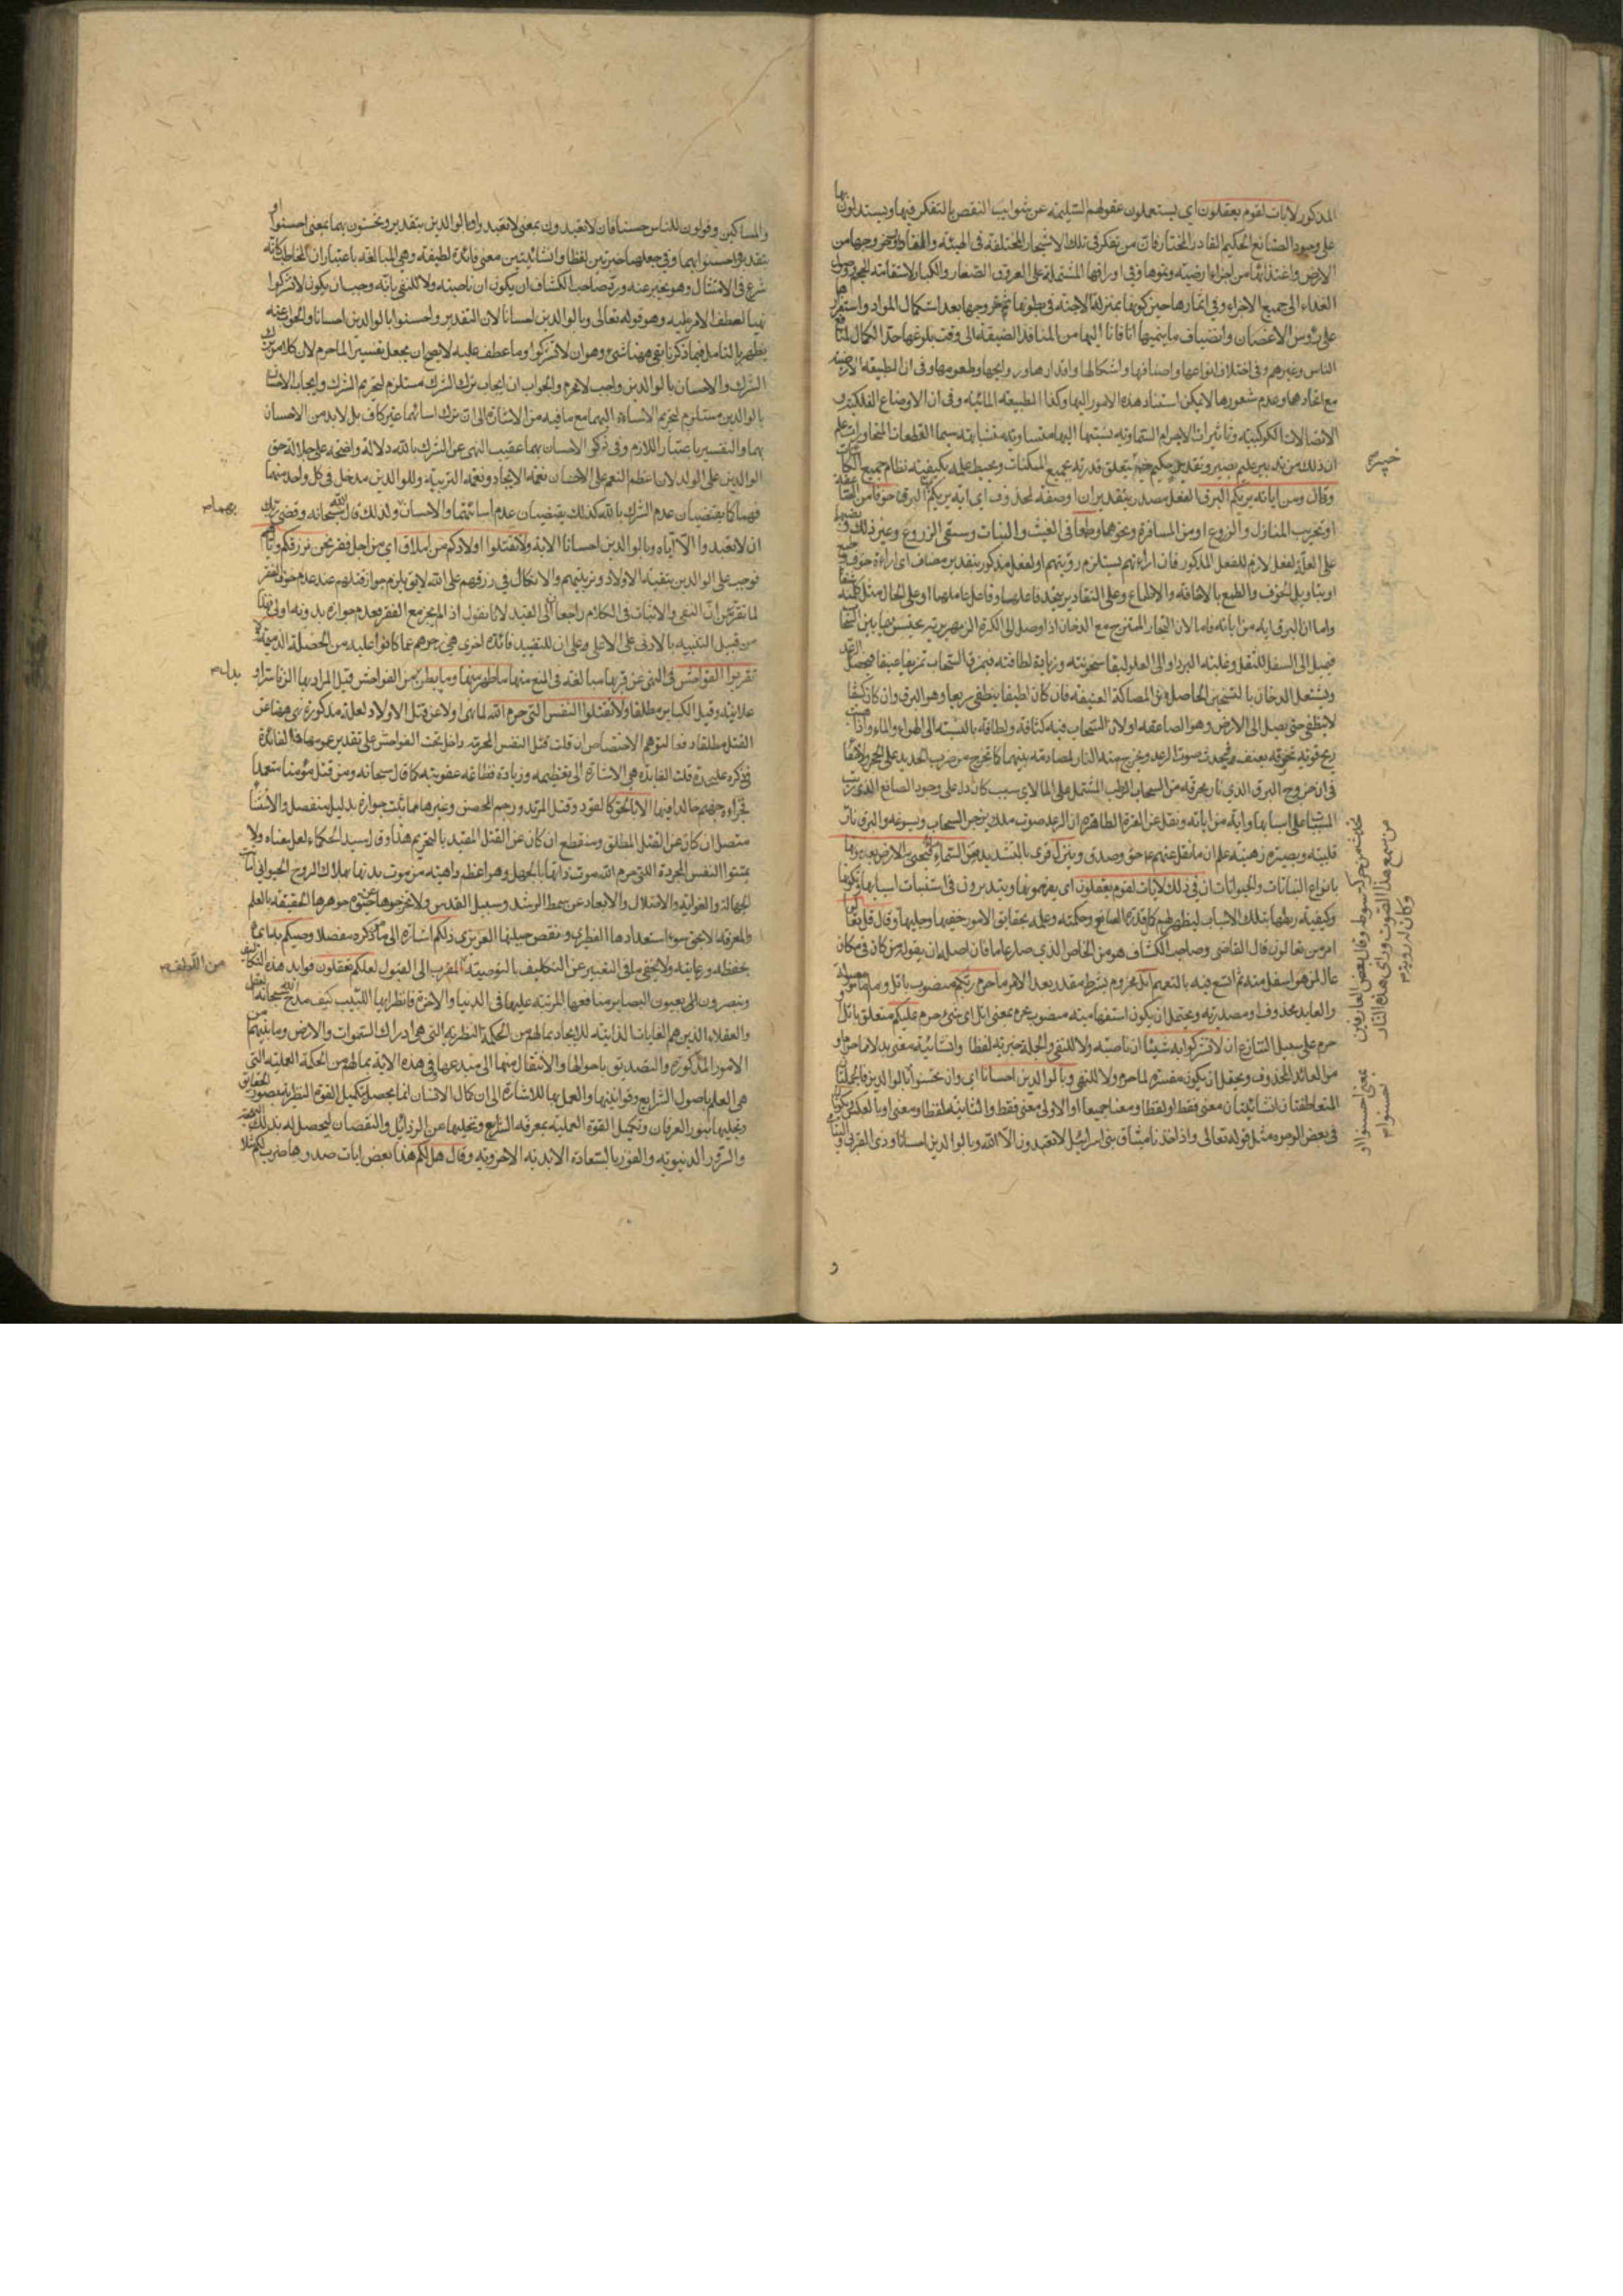 المذكور لايات لقوم يعقلون اى يستعملون عقولهم السليمة عن شوايب النقص بالتفكر فيها ويستدلون بها
على وجود الصانع الحكيم القادر المختار فان من تفكر فى تلك الاشجار المختلفة فى الهيئة والمقادير وخروجها من
الارض واغتذائها من اجزاء ارضية ونموها وفى اوراقها المشتملة على العروق الصغار والكبار لاستقامة الحجم ووصول
الغذاء الى جميع الاجزاء وفى اثمارها حين كونها بمنزلة الاجنة فى بطونها ثم خروجها بعد استكمال المواد واستقرارها
على رؤس الاغصان وانضياف ما ينميها انا فانا اليها من المنافذ الضيقة الى وقت بلوغها حد الكمال لمنافع
الناس وغيرهم وفى اختلاف انواعها واصنافها واشكالها واقدارها وروايحها وطعومها وفى ان الطبيعة الارضية
مع اتحادها وعدم شعورها لا يمكن استناد هذه الامور اليها وكذا الطبيعة المائية وفى ان الاوضاع الفلكية و
الاتصالات الكوكبية وتاثيرات الاجرام السماوية نسبتها اليها متساوية متشابهة سيما القطعات المتجاورات علم
ان ذلك من تدبير عليم بصير وتقدير حكيم خبير يتعلق قدرته بجميع الممكنات ويحيط علمه بكيفية نظام جميع الكائنات
وقال ومن اياته يريكم البرق الفعل مصدر بتقدير ان او صفة لمحذوف اى اية يريكم البرق خوفا من الصاعقة
او تخريب المنازل والزروع او من المسافرة ونحوهما وطمعا فى الغيث والنبات وسقى الزروع وغير ذلك ونصبهما
على العلة لفعل لازم للفعل المذكور فان اراءتهم يستلزم رؤيتهم او لفعل مذكور بتقدير مضاف اى اراءة خوف وطمع
او بتاويل الخوف والطمع بالاخافة والاطماع وعلى التقادير يتحد فاعلهما وفاعل عاملهما او على الحال مثل كلمته شفاها
واما ان البرق اية من اياته فاما لان البخار الممتزج مع الدخان اذا وصل الى الكرة الزمهريرية يحتبس فيما بين السحاب
فيميل الى السفل للثقل وغلبة البرد او الى العلو لبقا سخونته وزيادة لطافته فيمزق السحاب تمزيقا عنيفا فيحصل الرعد
ويشتعل الدخان بالتسخين الحاصل من المصاكة العنيفة فان كان لطيفا ينطفى سريعا وهو البرق وان كان كثيفا
لا ينطفى حتى يصل الى الارض وهو الصاعقة او لان السحاب فيه كثافة ولطافة بالنسبة الى الهواء والماء واذا هبت
ريح قوية تخرقه بعنف فيحدث صوت الرعد ويخرج منه النار لمصادمة بينهما كما تخرج من ضرب الحديد على الحجر
فى ان خروج البرق الذى نار محرقة من السحاب الرطب المشتمل على الماء لاى سبب كان دل على وجود الصانع الذى رتب
المسببات على اسبابها واية من اياته ونقل عن العترة الطاهرة ان الرعد صوت ملك يزجر السحاب ويسوقه والبرق نار
قلبية وبصيرة ذهنية علم ان ما نقل عنهم ع حق وصدق وينزل قرى بالتشديد من السماء ماء فيحيى به الارض بعد موتها
بانواع النباتات والحيوانات ان فى ذلك لايات لقوم يعقلون اى يفهمونها ويتدبرون فى استنباط اسبابها وتكونها
وكيفية ربطها بتلك الاسباب ليظهر لهم كمال قدرة الصانع وحكمته وعلمه بحقايق الامور خفيها وجليها وقال قل تعالوا
امر من تعالون قال القاضى وصاحب الكشاف هو من الخاص الذى صار عاما فان اصله ان يقوله من كان فى مكان
عال لمن هو اسفل منه ثم اتسع فيه بالتعميم اتل مجزوم بشرط مقدر بعد الامر ما حرم ربكم منصوب باتل وما موصولة
والعايد محذوف او مصدرية ويحتمل ان يكون استفهامية منصوب بحرم بمعنى اتل اى شىء حرم عليكم متعلق باتل او
حرم على سبيل التنازع ان لا تشركوا به شيئا ان ناصبة ولا للنفى والجملة خبرية لفظا وانشائية معنى بدلا ما حرم او
من العائد المحذوف ويحتمل ان يكون مفسرة لما حرم ولا للنهى وبالوالدين احسانا اى وان تحسنوا بالوالدين فالجملتان
المتعاطفتان انشائيتان معنى فقط او لفظا ومعنا جميعا او الاولى معنى فقط والثانية لفظا ومعنى او بالعكس ويكون
فى بعض الوجوه مثل قوله تعالى واذ اخذنا ميثاق بنى اسرائيل لا تعبدون الا الله وبالوالدين احسانا وذى القربى واليتامى
خبير
من سمع هذا الصوت وراى هذه النار
تحسنوا
بمعنى احسنوا او
و
والمساكين وقولوا للناس حسنا فان لا تعبدون بمعنى لا تعبدوا وبالوالدين بتقدير وتحسنون بهما بمعنى احسنوا او
بتقدير واحسنوا بهما وفى جعلهما خبريتين لفظا وانشائيتين معنى فائدة لطيفة وهى المبالغة باعتبار ان المخاطب كانه
شرع فى الامتثال وهو يخبر عنه ورد صاحب الكشاف ان يكون ان ناصبة ولا للنفى بانه وجب ان يكون لا تشركوا
نهيا لعطف الامر عليه وهو قوله تعالى وبالوالدين احسانا لان التقدير واحسنوا بالوالدين احسانا والجواب عنه
يظهر بالتامل فيما ذكرنا بقى ههنا شىء وهو ان لا تشركوا وما عطف عليه لا يصح ان يجعل تفسيرا لما حرم لان كلا من ترك
الشرك والاحسان بالوالدين واجب لا محرم والجواب ان ايجاب ترك الشرك مستلزم لتحريم الشرك وايجاب الاحسان
بالوالدين مستلزم لتحريم الاساءة اليهما مع ما فيه من الاشارة الى ان ترك اسائتهما غير كاف بل لابد من الاحسان
بهما والتفسير باعتبار اللازم وفى ذكر الاحسان بهما عقيب النهى عن الشرك بالله دلالة واضحة على جلالة حق
الوالدين على الولد لان اعظم النعم على الانسان نعمة الايجاد ونعمة التربية وللوالدين مدخل فى كل واحد منهما
فهما كما يقتضيان عدم الشرك بالله كذلك يقتضيان عدم اسائتهما والاحسان ولذلك قال الله سبحانه وقضى ربك
ان لا تعبدوا الا اياه وبالوالدين احسانا الاية ولا تقتلوا اولادكم من املاق اى من اجل فقر نحن نرزقكم واياهم
فوجب على الوالدين تبقية الاولاد وتربيتهم والاتكال فى رزقهم على الله لا يق يلزم جواز قتلهم عند عدم خوف الفقر
لما تقرر من ان النفى والاثبات فى الكلام راجعان الى القيد لانا نقول اذا لم يجز مع الفقر فعدم جوازه بدونه اولى فهذا
من قبيل التنبيه بالادنى على الاعلى وعلى ان للتقييد فائدة اخرى هى زجرهم عما كانوا عليه من الخصلة الذميمة ولا
تقربوا الفواحش فى النهى عن قربها مبالغة فى المنع منها ما ظهر منها وما بطن من الفواحش قيل المراد بها الزنا سرا او
علانية وقيل الكباير مطلقا ولا تقتلوا النفس التى حرم الله لما نهى اولا عن قتل الاولاد لعلة مذكورة نهى ههنا عن
القتل مطلقا دفعا لتوهم الاختصاص ان قلت قتل النفس المحرمة داخل تحت الفواحش على تقدير عمومها فما الفائدة
فى ذكره عليحدة قلت الفايدة هى الاشارة الى تعظيمه وزيادة فظاعة عقوبته كما قال سبحانه ومن قتل مؤمنا متعمدا
فجزاءه جهنم خالدا فيها الا بالحق كالقود وقتل المرتد ورجم المحصن وغيرها مما ثبت جوازه بدليل منفصل والاستثناء
متصل ان كان عن القتل المطلق ومنقطع ان كان عن القتل المقيد بالتحريم هذا وقال سيد الحكماء لعل معناه ولا
تميتوا النفس المجردة التى حرم الله موت ذاتها بالجهل وهو اعظم داهية من موت بدنها بهلاك الروح الحيوانى
الجهالة والغواية والاضلال والابعاد عن سمط الرشد وسبيل القدس ولا تخرجوها عن جوهرها الحقيقة بالعلم
والمعرفة الا بحق سوء استعدادها الفطرى ونقص جبلتها الغريزى ذلكم اشارة الى ما ذكره مفصلا وصيكم به اى
بحفظه ورعايته ولا يخفى ما فى التعبير عن التكليف بالتوصية المقرب الى القبول لعلكم تعقلون فوايد هذه التكاليف
وتبصرون الى بعيون البصاير منافعها المرتبة عليها فى الدنيا والاخرة فانظر ايها اللبيب كيف مدح الله سبحانه العقل
والعقلاء الذين هم الغايات الذاتية للايجاد بمالهم من الحكمة النظرية التى هى ادراك السموات والارض وما بينهما من
الامور المذكورة والتصديق باحوالها والانتقال منها الى مبدعها وفى هذه الاية بمالهم من الحكمة العملية التى
هى العلم باصول الشرايع وقوانينها والعمل بها للاشارة الى ان كمال الانسان انما يحصل بتكميل القوة النظرية بصور الحقايق
وتحليها بنور العرفان وتكميل القوة العملية بمعرفة الشرايع وتخليها عن الرذائل والنقصان ليحصل له بذلك
والسرور الدنيوية والفوز بالسعادة الابدية الاخروية وقال هل لكم هذا بعض ايات صدرها ضرب لكم مثلا
بهما
بدل
من اللطف